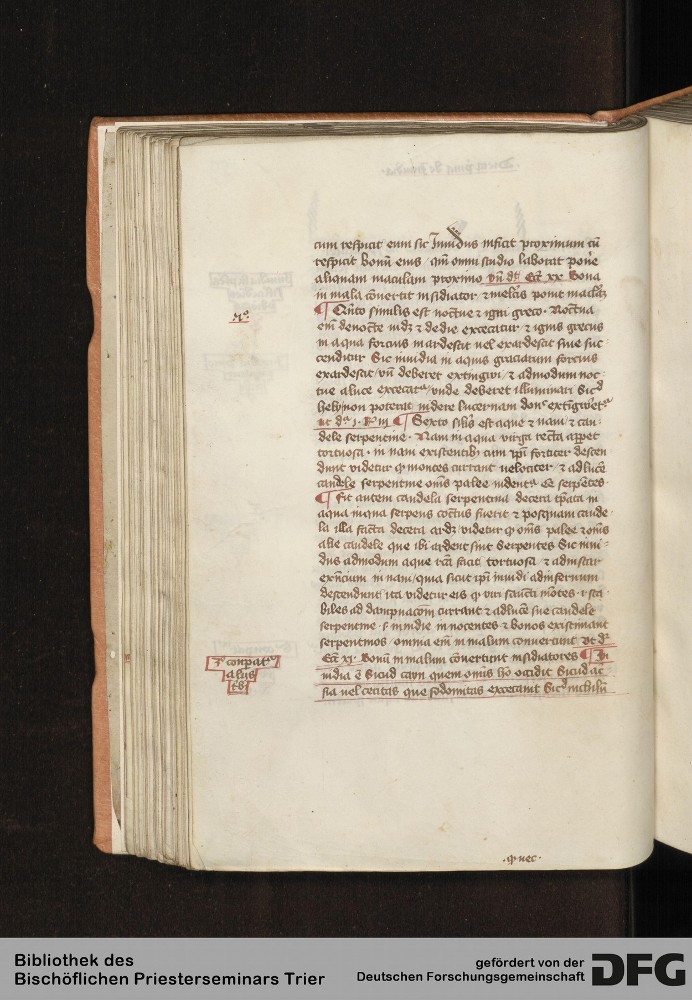 cum respicit eum sic Inuidus inficit proximum cū
respicit bonū eius / qm̄ omni studio laborat pone
aliquam maculam proximo vn̄ dr̄ Ecc̄ xx Bona
in mala cōuertit insidiator et in electis ponit maculā
¶ Qnto similis est noctue et igni greco · Noctua
em̄ de nocte vidz et de die excecatur et ignis grecus
in aqua forcius inardescit vel exardescit siue suc
cenditur Sic inuidia in aquis graciarum forcius
exardescit / vn̄ deberet extingwi / et admodum noc
tue a luce excecatr / vnde deberet illuminari Sicd
hely non poterat videre lucernam donec extingweretr
vt dr 1 · R iii ¶ Sexto silis est aque et naui / et can
dele serpentine · Nam in aqua virga recta apparet
tortuosa · in naui existentibus cum ipsi fortiter descen
dunt videtur qp montes currant velociter / et ad lucē
candele serpentine om̄s palee videntr esse serpētes
¶ Fit autem candela serpentina de cera tpata in
aqua in qua serpens coctus fuerit et posquam cande
la illa facta de cera ardz / videtur qp om̄s palee et om̄s
alie candele que ibi ardent sint serpentes Sic inui
dus admodum aque rcā facit tortuosa et ad instar
exn̄cium in naui / qua sicut ipī inuidi ad infernum
descendunt ita videtur eis qp viri sancti mōtes · i · sta
biles ad dampnacōem currant et ad lucē sue candele
serpentine · s · inuidie innocentes et bonos existimant
serpentinos / omnia em̄ in malum conuertunt vt dr
Ecc̄ xi · Bonū in malum cōuertunt insidiatores ¶ In
uidia ē Sicud cayn quem omnis hō occidit Sicud ac
sia vel cecitas que sodomitas excecauit Sicd nichil

3ª conpatr
alijs
· qp nec ·
Bibliothek des
Bischöflichen Priesterseminars Trier
gefördert von der
Deutschen Forschungsgemeinschaft
DFG